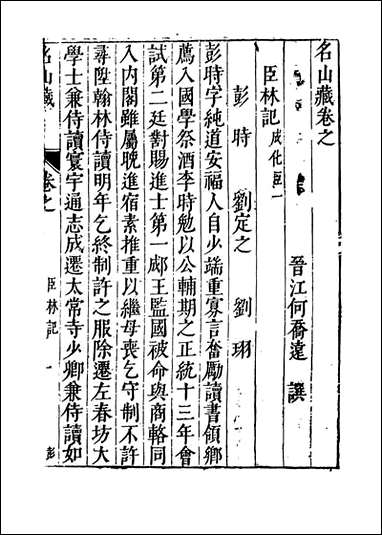 名山藏卷之
晉江何喬遠 譔
臣林記 成化臣一
彭時 劉定之 劉珝
彭時字純道安福人自少端重寡言奮勵讀書領鄉
薦入國學祭酒李時勉以公輔期之正統十三年會
試第二廷對賜進士第一郕王監國被命與商輅同
入內閣雖屬晩進宿素推重以繼母喪乞守制不許
尋陞翰林侍讀明年乞終制許之服除遷左春坊大
學士兼侍讀寰宇通志成遷太常寺少卿兼侍讀如
名山藏 卷之 臣林記 一 彭